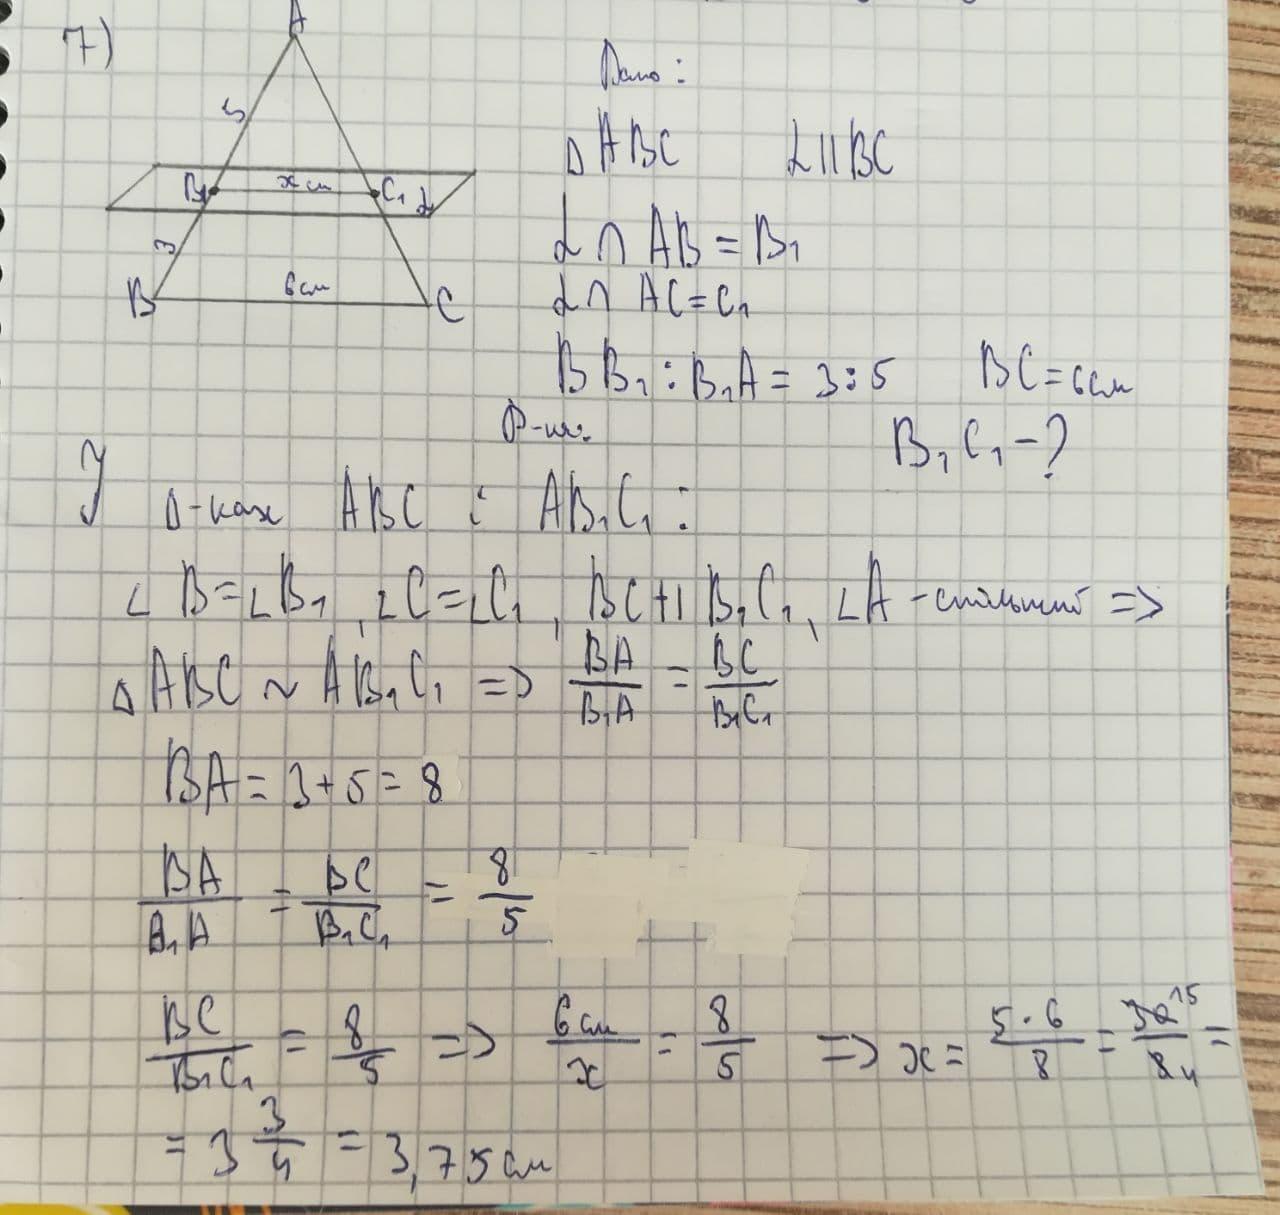 7)
A
5
B₁ x см C₁ α
3
B 6см C
Дано:
△ABC α||BC
α∩AB=B₁
α∩AC=C₁
BB₁:B₁A=3:5 BC=6см
B₁C₁-?
Р-ня:
У △-ках ABC і AB₁C₁:
∠B=∠B₁, ∠C=∠C₁, BC||B₁C₁, ∠A-спільний =>
△ABC~AB₁C₁ => BA/B₁A = BC/B₁C₁
BA=3+5=8
BA/B₁A = BC/B₁C₁ = 8/5
BC/B₁C₁ = 8/5 => 6см/x = 8/5 => x = 5·6/8 = 30 15/8 4 =
= 3 3/4 = 3,75см